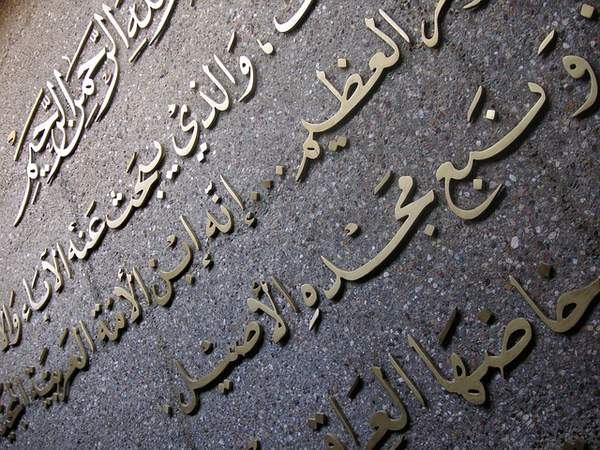 الله الرَّحمن الرَّحيم
، وَالذي يبحث عنه الآباء
العظيم ... إنّه ابْن الأمّة العربيّة
وَنبع مجْدهِ الأصيْل.
خاضهَا العراق